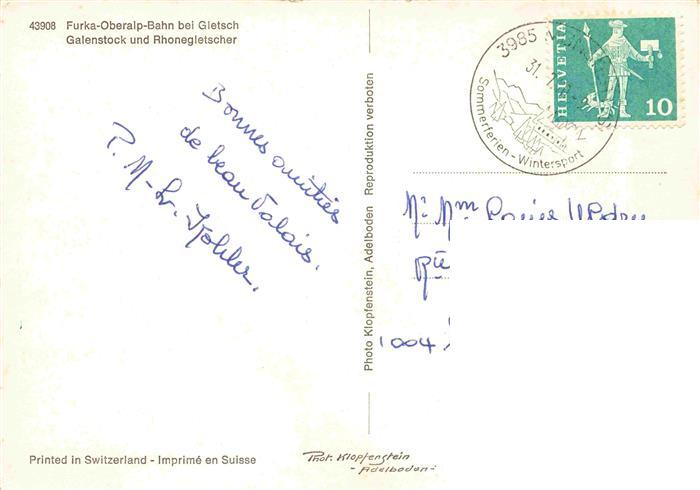 43908 Furka-Oberalp-Bahn bei Gletsch
Galenstock und Rhonegletscher
Bonnes amitiés
de beau Valais.
P. M-L. Kohler.
Photo Klopfenstein, Adelboden Reproduktion verboten
3985
31.
Sommerferien - Wintersport
HELVETIA
10
1004
Printed in Switzerland - Imprimé en Suisse
Phot. Klopfenstein
- Adelboden -